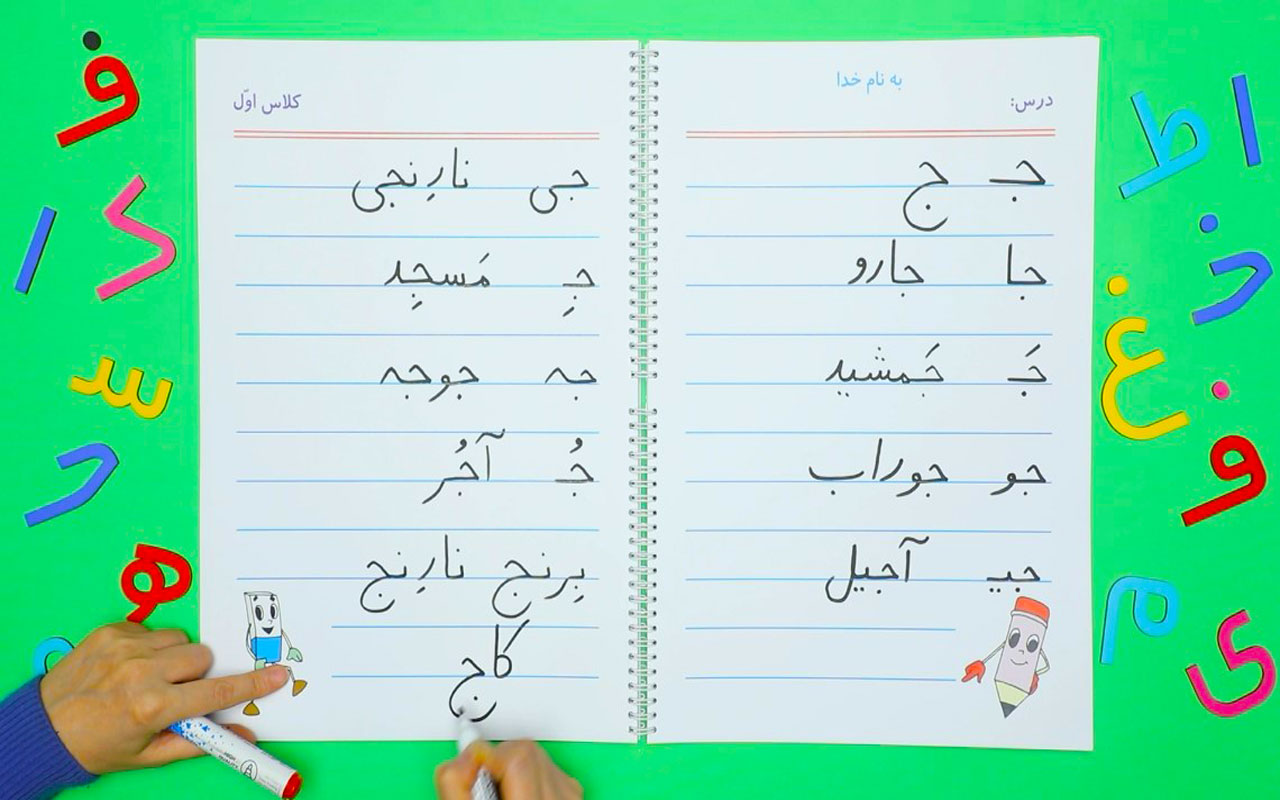 به نام خدا
درس:
جـ ج
جا جارو
جَـ جَمشید
جو جوراب
جیـ آجیل
کلاس اوّل
جی نارِنجی
جِـ مَسجِد
جه جوجه
جُـ آجُر
بِرِنج نارِنج
کاج